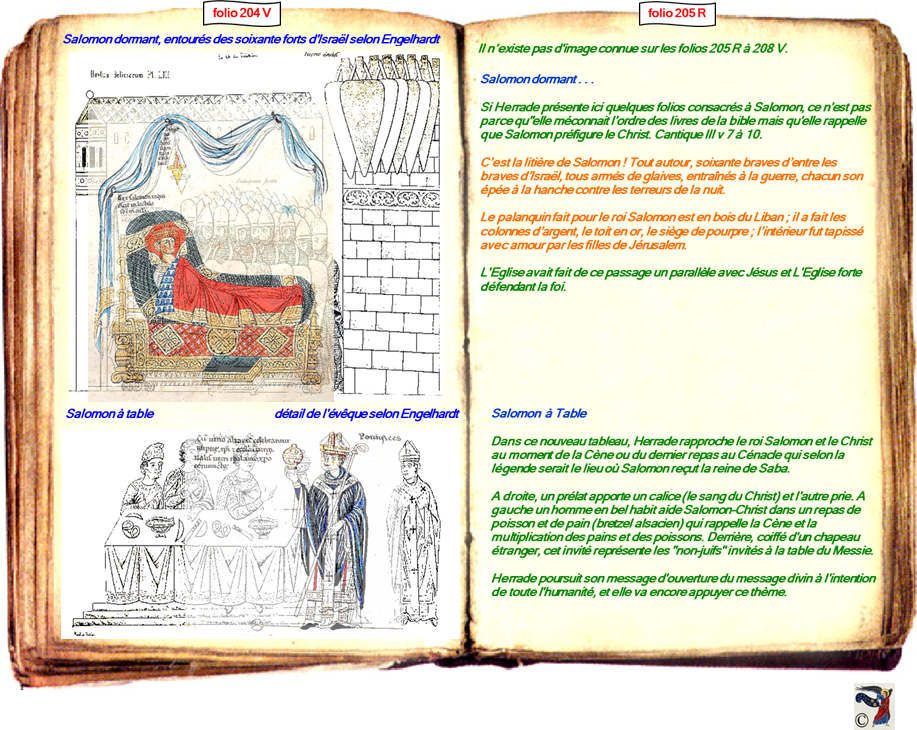 folio 204 V
Salomon dormant, entourés des soixante forts d'Israël selon Engelhardt
Hortus deliciarum Pl. LIII
Salomon à table
détail de l'évêque selon Engelhardt
Pontifices
folio 205 R
Il n'existe pas d'image connue sur les folios 205 R à 208 V.
Salomon dormant . . .
Si Herrade présente ici quelques folios consacrés à Salomon, ce n'est pas
parce qu"elle méconnait l'ordre des livres de la bible mais qu'elle rappelle
que Salomon préfigure le Christ. Cantique III v 7 à 10.
C'est la litière de Salomon ! Tout autour, soixante braves d'entre les
braves d'Israël, tous armés de glaives, entraînés à la guerre, chacun son
épée à la hanche contre les terreurs de la nuit.
Le palanquin fait pour le roi Salomon est en bois du Liban ; il a fait les
colonnes d'argent, le toit en or, le siège de pourpre ; l'intérieur fut tapissé
avec amour par les filles de Jérusalem.
L'Eglise avait fait de ce passage un parallèle avec Jésus et L'Eglise forte
défendant la foi.
Salomon à Table
Dans ce nouveau tableau, Herrade rapproche le roi Salomon et le Christ
au moment de la Cène ou du dernier repas au Cénacle qui selon la
légende serait le lieu où Salomon reçut la reine de Saba.
A droite, un prélat apporte un calice (le sang du Christ) et l'autre prie. A
gauche un homme en bel habit aide Salomon-Christ dans un repas de
poisson et de pain (bretzel alsacien) qui rappelle la Cène et la
multiplication des pains et des poissons. Derrière, coiffé d'un chapeau
étranger, cet invité représente les "non-juifs" invités à la table du Messie.
Herrade poursuit son message d'ouverture du message divin à l'intention
de toute l'humanité, et elle va encore appuyer ce thème.
©